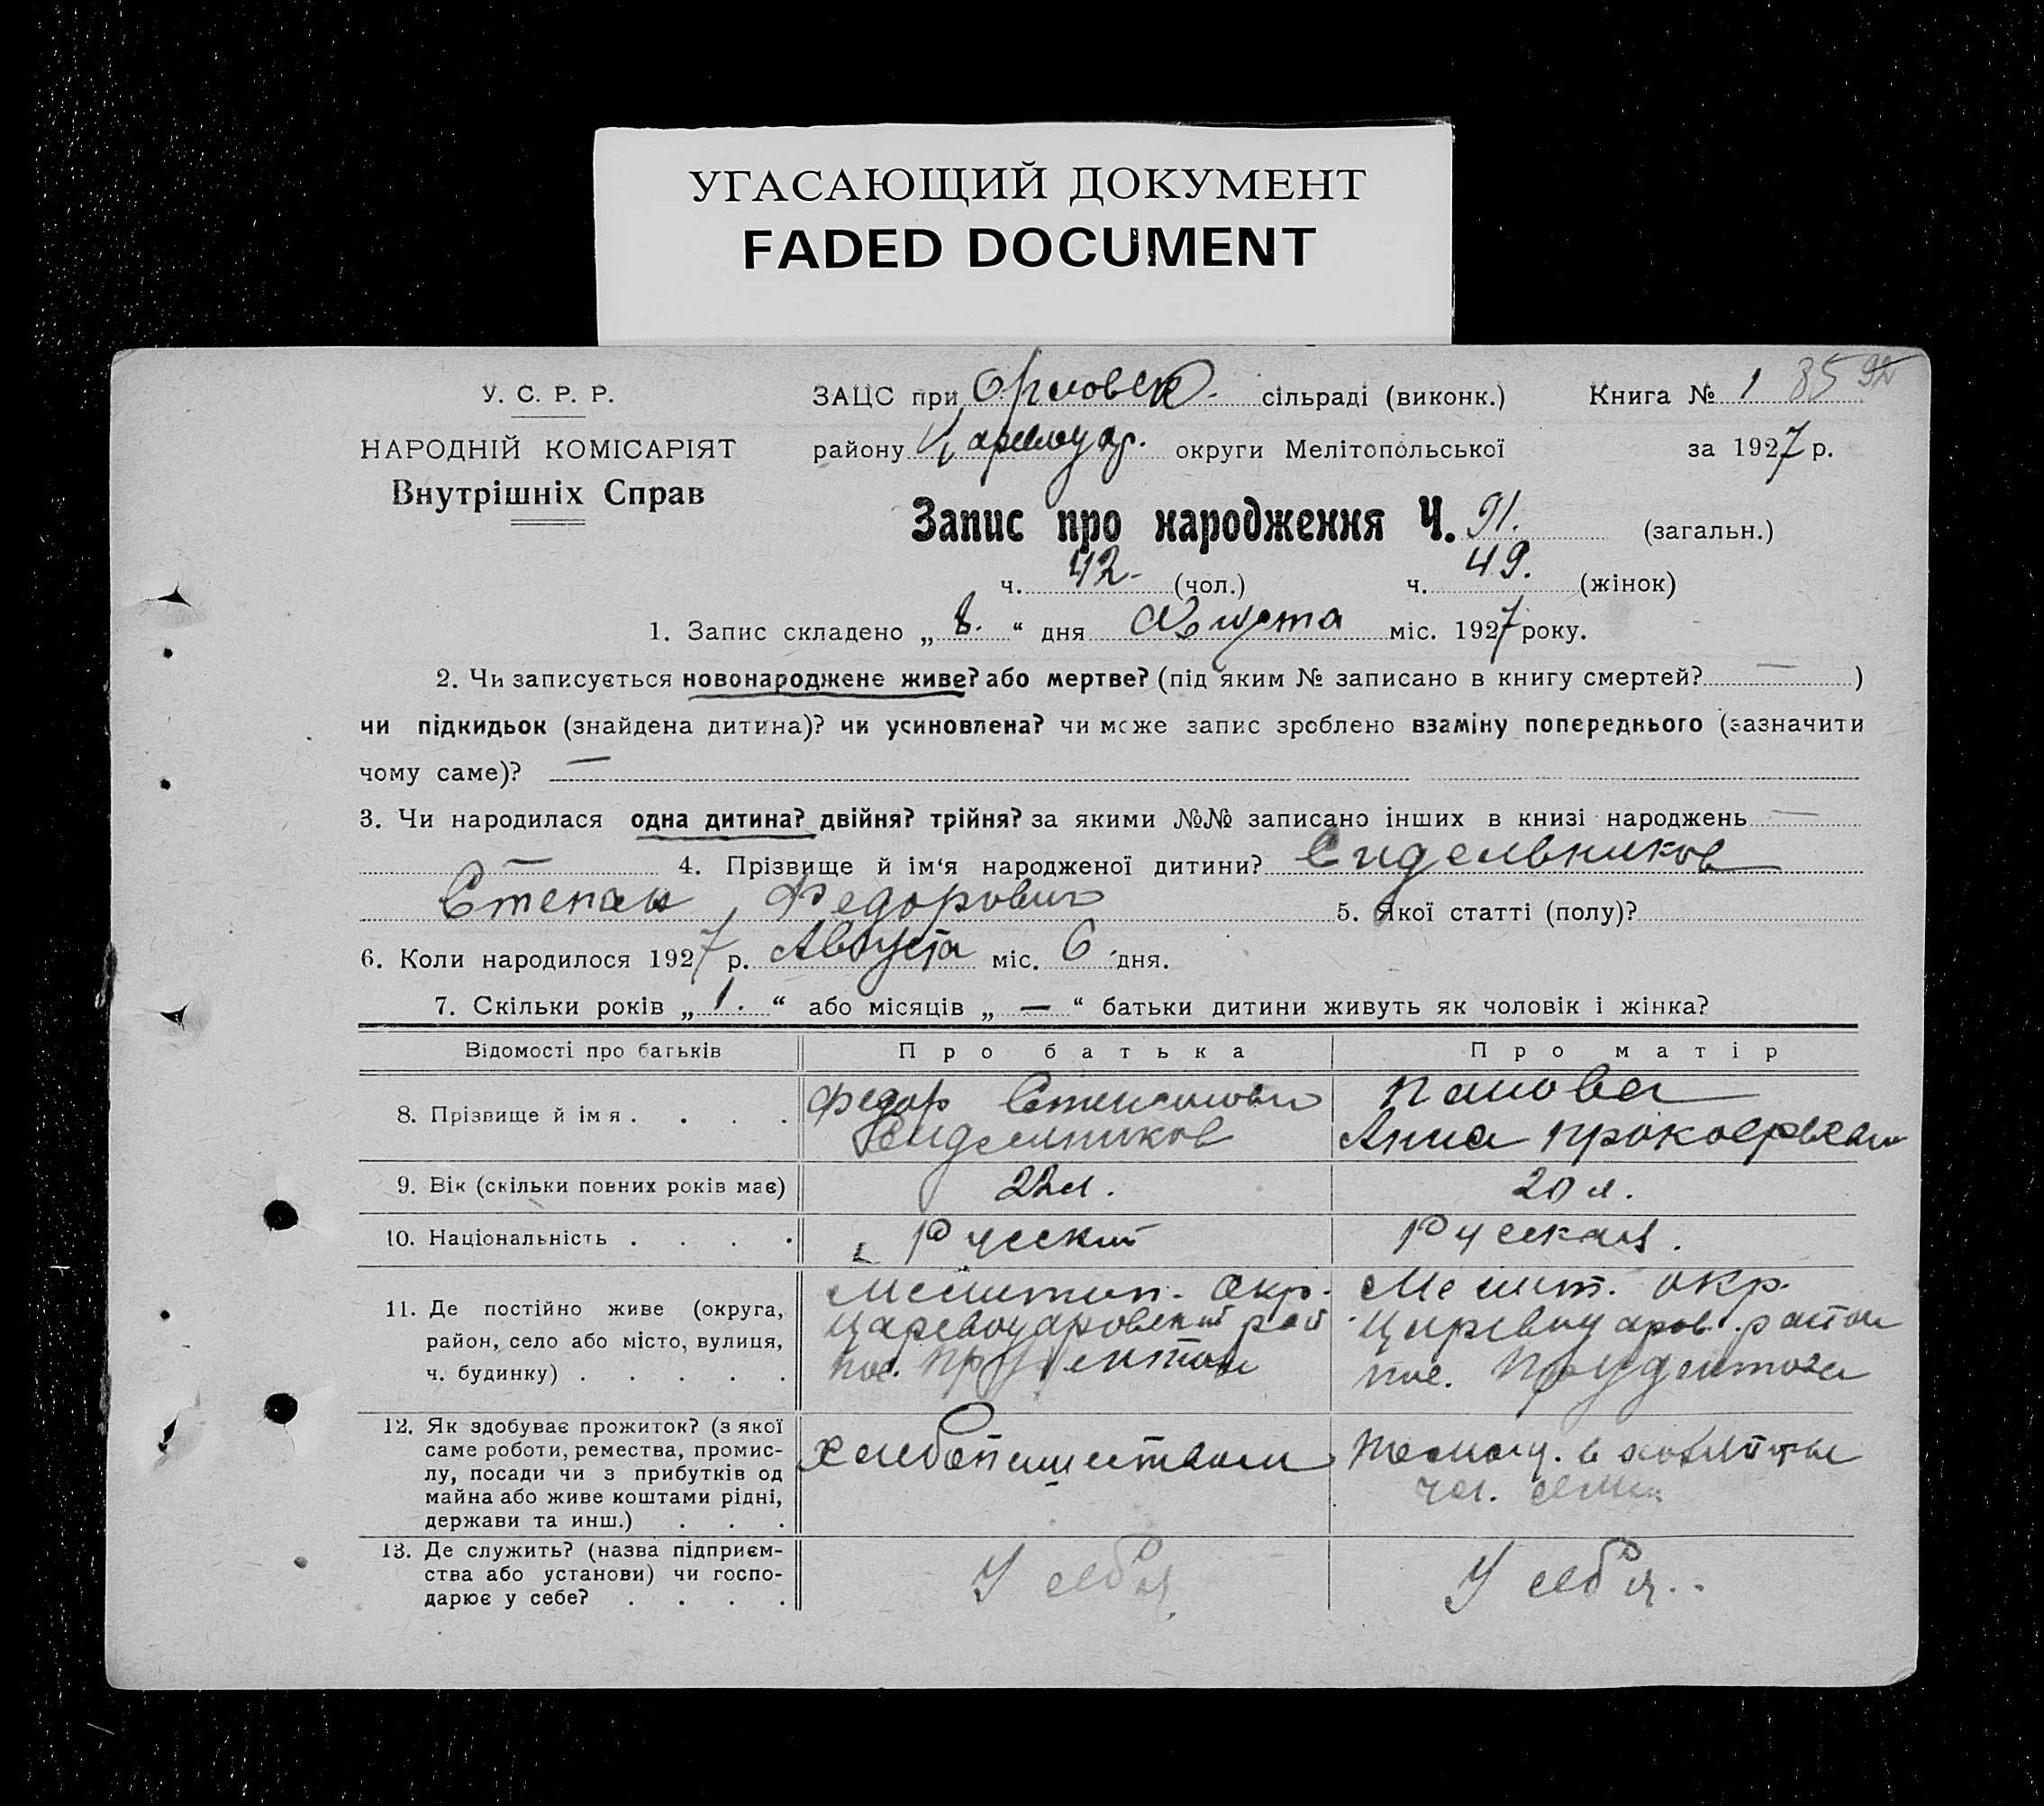 УГАСАЮЩИЙ ДОКУМЕНТ
FADED DOCUMENT
У. С. Р. Р.
НАРОДНІЙ КОМІСАРІЯТ
Внутрішніх Справ
ЗАЦС при Орловск. сільраді (виконк.) Книга № 1 85 92
району округи Мелітопольської за 1927 р.
Запис про народження Ч. 91. (загальн.)
ч. 42- (чол.) ч. 49. (жінок)
1. Запис складено „ 8. “ дня Августа міс. 1927 року.
2. Чи записується новонароджене живе? або мертве? (під яким № записано в книгу смертей? — )
чи підкидьок (знайдена дитина)? чи усиновлена? чи може запис зроблено взаміну попереднього (зазначити
чому саме)? —
3. Чи народилася одна дитина? двійня? трійня? за якими №№ записано інших в книзі народжень —
— 4. Прізвище й ім‘я народженої дитини? Сидельников
Степан, Федорович 5. Якої статті (полу)?
6. Коли народилося 1927 р. Августа міс. 6 дня.
7. Скільки років „ 1. “ або місяців „ — “ батьки дитини живуть як чоловік і жінка?
Відомості про батьків Про батька Про матір
8. Прізвище й імя . . . . Федор Степанович Сидельников
Панова Анна
9. Вік (скільки повних років має) 22 л. 20 л.
10. Національність . . . . Русский Русская.
11. Де постійно живе (округа,
район, село або місто, вулиця,
ч. будинку) . . . . .
Мелитоп. Окр.
Царевоудровский рай
пос. Прудентова
Мелит. окр.
Царевоудров. район
пос. Прудентова
12. Як здобуває прожиток? (з якої
саме роботи, ремества, промис-
лу, посади чи з прибутків од
майна або живе коштами рідні,
держави та инш.) . . .
Хлебопашеством
Помощ. в
чл. семьи
13. Де служить? (назва підприєм-
ства або установи) чи госпо-
дарює у себе? . . . .
У себя
У себя..